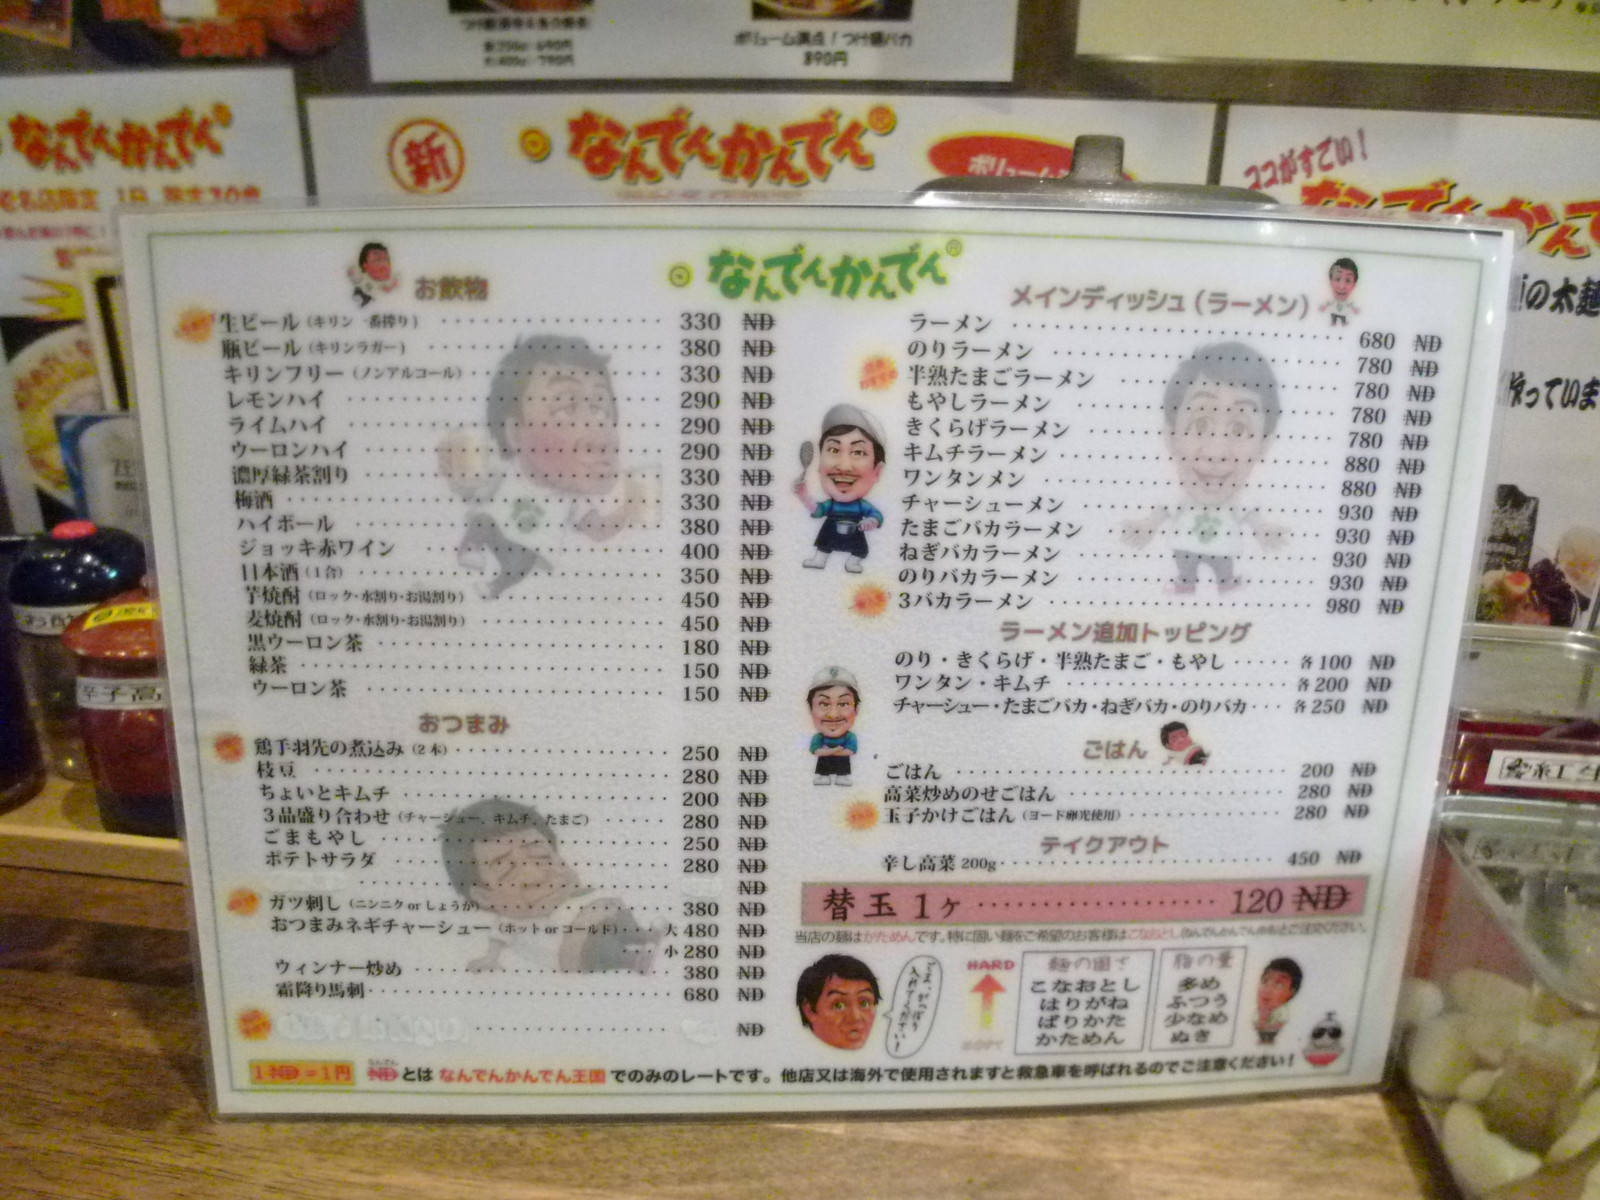 ボリューム満点！つけ麺バカ
890円
なんでんかんでん
新
なんでんかんでん
ココがすごい！
お飲物
生ビール（キリン一番搾り） 330 ND
瓶ビール（キリンラガー） 380 ND
キリンフリー（ノンアルコール） 330 ND
レモンハイ 290 ND
ライムハイ 290 ND
ウーロンハイ 290 ND
濃厚緑茶割り 330 ND
梅酒 330 ND
ハイボール 380 ND
ジョッキ赤ワイン 400 ND
日本酒（1合） 350 ND
芋焼酎（ロック・水割り・お湯割り） 450 ND
麦焼酎（ロック・水割り・お湯割り） 450 ND
黒ウーロン茶 180 ND
緑茶 150 ND
ウーロン茶 150 ND
おつまみ
鶏手羽先の煮込み（2本） 250 ND
枝豆 280 ND
ちょいとキムチ 200 ND
3品盛り合わせ（チャーシュー、キムチ、たまご） 280 ND
ごまもやし 250 ND
ポテトサラダ 280 ND
ND
ガツ刺し（ニンニク or しょうが） 380 ND
おつまみネギチャーシュー（ホット or コールド） 大 480 ND
小 280 ND
ウィンナー炒め 380 ND
霜降り馬刺 680 ND
ND
なんでんかんでん
メインディッシュ（ラーメン）
ラーメン 680 ND
のりラーメン 780 ND
半熟たまごラーメン 780 ND
もやしラーメン 780 ND
きくらげラーメン 780 ND
キムチラーメン 880 ND
ワンタンメン 880 ND
チャーシューメン 930 ND
たまごバカラーメン 930 ND
ねぎバカラーメン 930 ND
のりバカラーメン 930 ND
3バカラーメン 980 ND
ラーメン追加トッピング
のり・きくらげ・半熟たまご・もやし 各100 ND
ワンタン・キムチ 各200 ND
チャーシュー・たまごバカ・ねぎバカ・のりバカ 各250 ND
ごはん
ごはん 200 ND
高菜炒めのせごはん 280 ND
玉子かけごはん（ヨード卵光使用） 280 ND
テイクアウト
辛し高菜 200g 450 ND
替玉 1ヶ 120 ND
当店の麺はかためんです。特に固い麺をご希望のお客様はこなおとし（なんでんかんでん）とご注文ください。
HARD
麺の固さ
こなおとし
はりがね
ばりかた
かためん
脂の量
多め
ふつう
少なめ
ぬき
1 ND = 1円 NDとは なんでんかんでん王国 でのみのレートです。他店又は海外で使用されますと救急車を呼ばれるのでご注意ください！